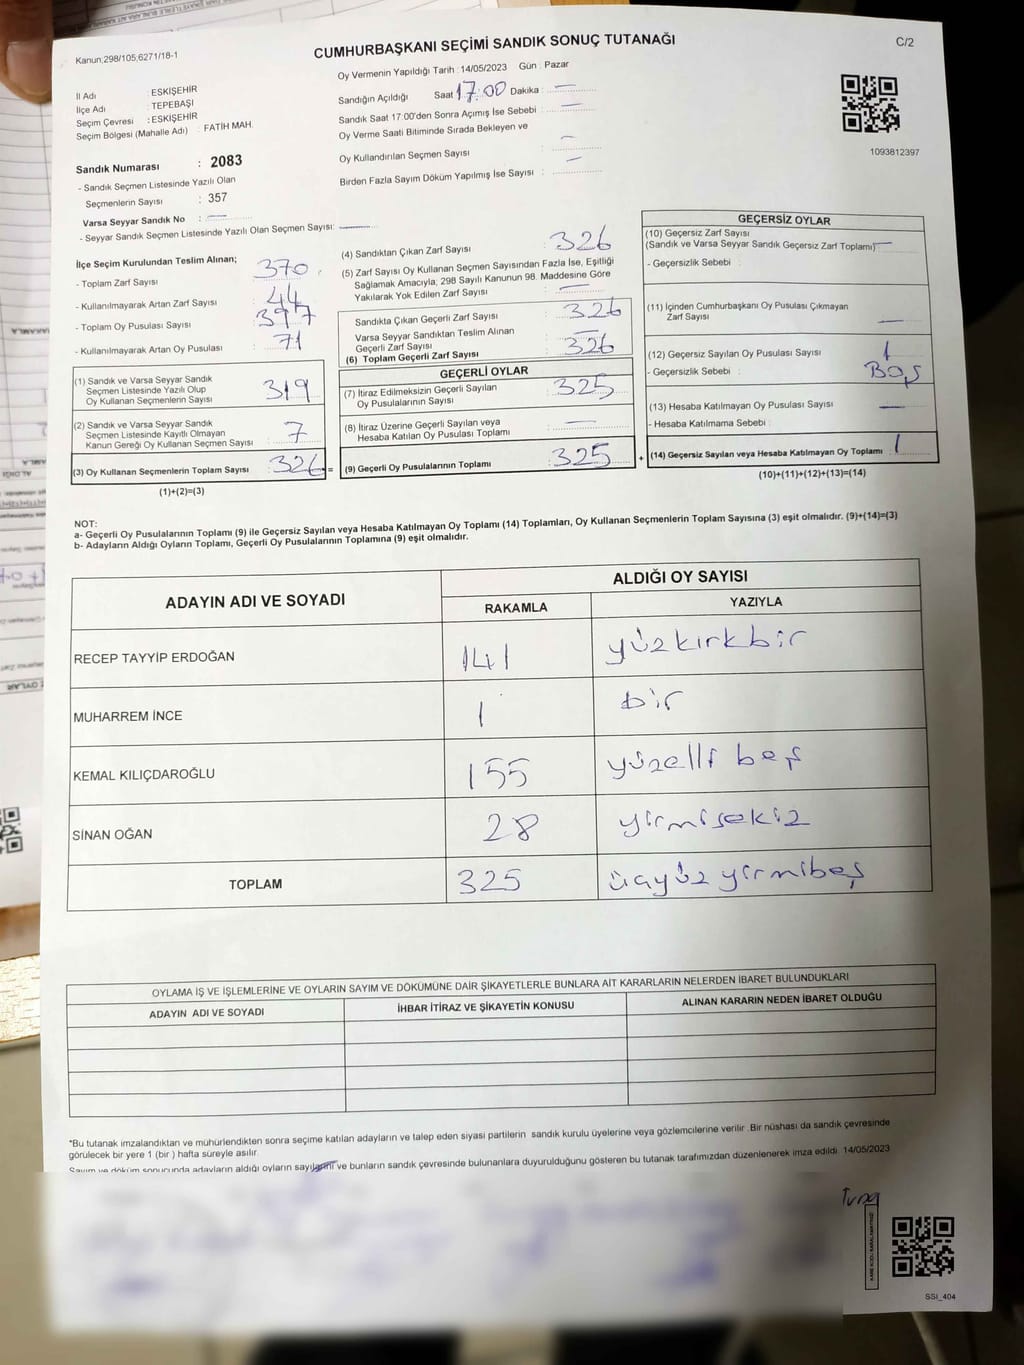 Kanun;298/105;6271/18-1
CUMHURBAŞKANI SEÇİMİ SANDIK SONUÇ TUTANAĞI
C/2
İl Adı : ESKİŞEHİR
İlçe Adı : TEPEBAŞI
Seçim Çevresi : ESKİŞEHİR
Seçim Bölgesi (Mahalle Adı) : FATİH MAH.
Sandık Numarası : 2083
- Sandık Seçmen Listesinde Yazılı Olan
Seçmenlerin Sayısı : 357
Varsa Seyyar Sandık No : —
- Seyyar Sandık Seçmen Listesinde Yazılı Olan Seçmen Sayısı: —
Oy Vermenin Yapıldığı Tarih : 14/05/2023 Gün : Pazar
Sandığın Açıldığı Saat 17:00 Dakika : —
Sandık Saat 17:00'den Sonra Açımış İse Sebebi : —
Oy Verme Saati Bitiminde Sırada Bekleyen ve
Oy Kullandırılan Seçmen Sayısı : —
Birden Fazla Sayım Döküm Yapılmış İse Sayısı : —
1093812397
İlçe Seçim Kurulundan Teslim Alınan;
- Toplam Zarf Sayısı : 370
- Kullanılmayarak Artan Zarf Sayısı : 44
- Toplam Oy Pusulası Sayısı : 397
- Kullanılmayarak Artan Oy Pusulası : 71
(1) Sandık ve Varsa Seyyar Sandık
Seçmen Listesinde Yazılı Olup
Oy Kullanan Seçmenlerin Sayısı : 319
(2) Sandık ve Varsa Seyyar Sandık
Seçmen Listesinde Kayıtlı Olmayan
Kanun Gereği Oy Kullanan Seçmen Sayısı : 7
(3) Oy Kullanan Seçmenlerin Toplam Sayısı : 326 =
(1)+(2)=(3)
(4) Sandıktan Çıkan Zarf Sayısı : 326
(5) Zarf Sayısı Oy Kullanan Seçmen Sayısından Fazla İse, Eşitliği
Sağlamak Amacıyla; 298 Sayılı Kanunun 98. Maddesine Göre
Yakılarak Yok Edilen Zarf Sayısı : —
Sandıkta Çıkan Geçerli Zarf Sayısı : 326
Varsa Seyyar Sandıktan Teslim Alınan
Geçerli Zarf Sayısı : —
(6) Toplam Geçerli Zarf Sayısı : 326
GEÇERLİ OYLAR
(7) İtiraz Edilmeksizin Geçerli Sayılan
Oy Pusulalarının Sayısı : 325
(8) İtiraz Üzerine Geçerli Sayılan veya
Hesaba Katılan Oy Pusulası Toplamı : —
(9) Geçerli Oy Pusulalarının Toplamı : 325 +
GEÇERSİZ OYLAR
(10) Geçersiz Zarf Sayısı
(Sandık ve Varsa Seyyar Sandık Geçersiz Zarf Toplamı) —
- Geçersizlik Sebebi :
(11) İçinden Cumhurbaşkanı Oy Pusulası Çıkmayan
Zarf Sayısı : —
(12) Geçersiz Sayılan Oy Pusulası Sayısı : 1
- Geçersizlik Sebebi : BOŞ
(13) Hesaba Katılmayan Oy Pusulası Sayısı : —
- Hesaba Katılmama Sebebi :
(14) Geçersiz Sayılan veya Hesaba Katılmayan Oy Toplamı : 1
(10)+(11)+(12)+(13)=(14)
NOT:
a- Geçerli Oy Pusulalarının Toplamı (9) ile Geçersiz Sayılan veya Hesaba Katılmayan Oy Toplamı (14) Toplamları, Oy Kullanan Seçmenlerin Toplam Sayısına (3) eşit olmalıdır. (9)+(14)=(3)
b- Adayların Aldığı Oyların Toplamı, Geçerli Oy Pusulalarının Toplamına (9) eşit olmalıdır.
ADAYIN ADI VE SOYADI
ALDIĞI OY SAYISI
RAKAMLA YAZIYLA
RECEP TAYYİP ERDOĞAN 141 yüzkırkbir
MUHARREM İNCE 1 bir
KEMAL KILIÇDAROĞLU 155 yüzelli beş
SİNAN OĞAN 28 yirmisekiz
TOPLAM 325 üçyüz yirmibeş
OYLAMA İŞ VE İŞLEMLERİNE VE OYLARIN SAYIM VE DÖKÜMÜNE DAİR ŞİKAYETLERLE BUNLARA AİT KARARLARIN NELERDEN İBARET BULUNDUKLARI
ADAYIN ADI VE SOYADI İHBAR İTİRAZ VE ŞİKAYETİN KONUSU ALINAN KARARIN NEDEN İBARET OLDUĞU
*Bu tutanak imzalandıktan ve mühürlendikten sonra seçime katılan adayların ve talep eden siyasi partilerin sandık kurulu üyelerine veya gözlemcilerine verilir .Bir nüshası da sandık çevresinde
görülecek bir yere 1 (bir ) hafta süreyle asılır.
Sayım ve döküm sonucunda adayların aldığı oyların sayılarını ve bunların sandık çevresinde bulunanlara duyurulduğunu gösteren bu tutanak tarafımızdan düzenlenerek imza edildi 14/05/2023
KARE KODU KARALAMAYINIZ!
SSI_404